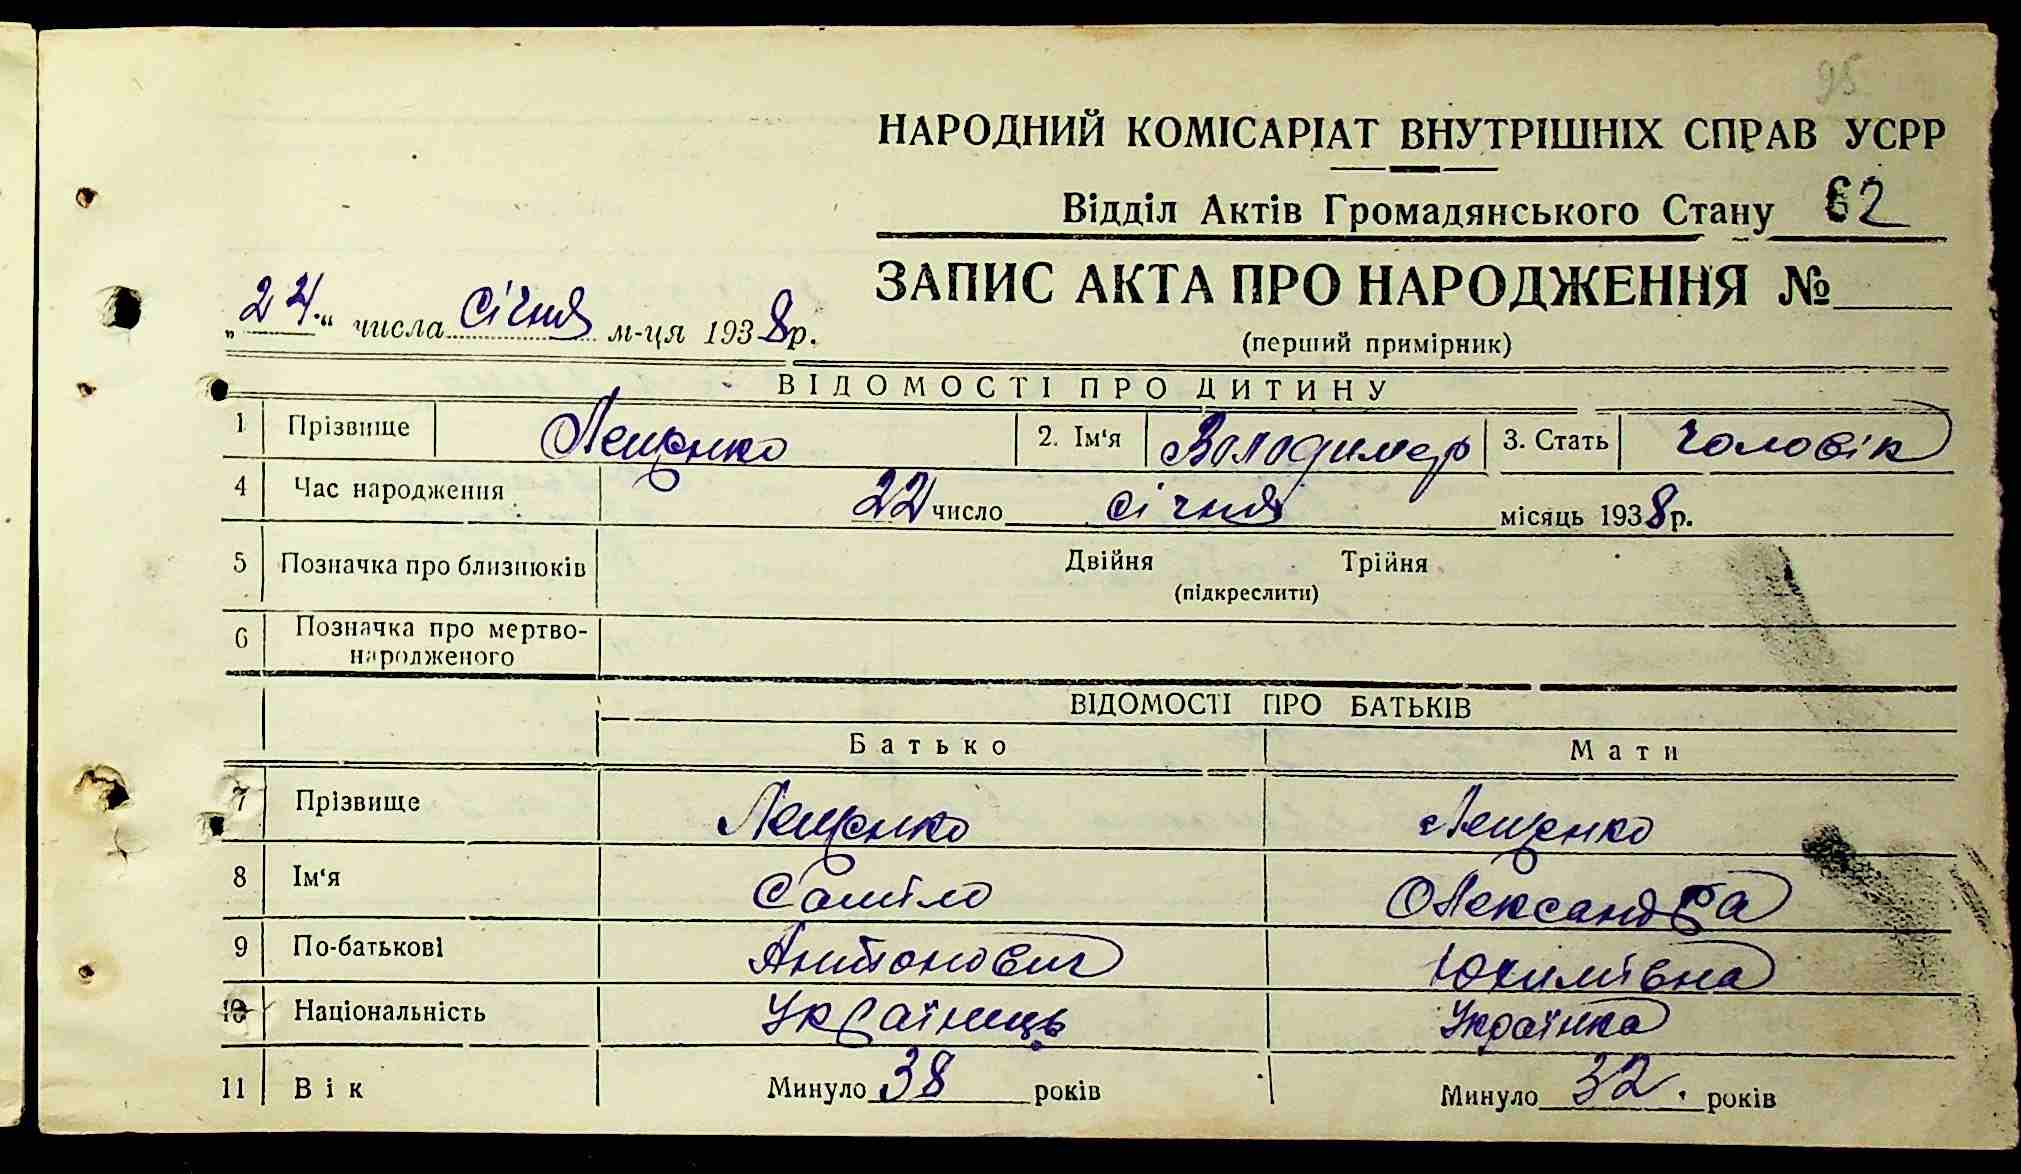 95
НАРОДНИЙ КОМІСАРІАТ ВНУТРІШНІХ СПРАВ УСРР
Відділ Актів Громадянського Стану 62
ЗАПИС АКТА ПРО НАРОДЖЕННЯ №
(перший примірник)
„24.“ числа січня м-ця 1938р.
ВІДОМОСТІ ПРО ДИТИНУ
1 Прізвище Лещенко 2. Ім'я Володимер 3. Стать чоловік
4 Час народження 22 число січня місяць 1938р.
5 Позначка про близнюків Двійня Трійня
(підкреслити)
6 Позначка про мертво-
народженого
ВІДОМОСТІ ПРО БАТЬКІВ
Батько Мати
7 Прізвище Лещенко Лещенко
8 Ім'я Саміло Олександра
9 По-батькові Антонович Юхимівна
10 Національність Українець Українка
11 Вік Минуло 38 років Минуло 32. років